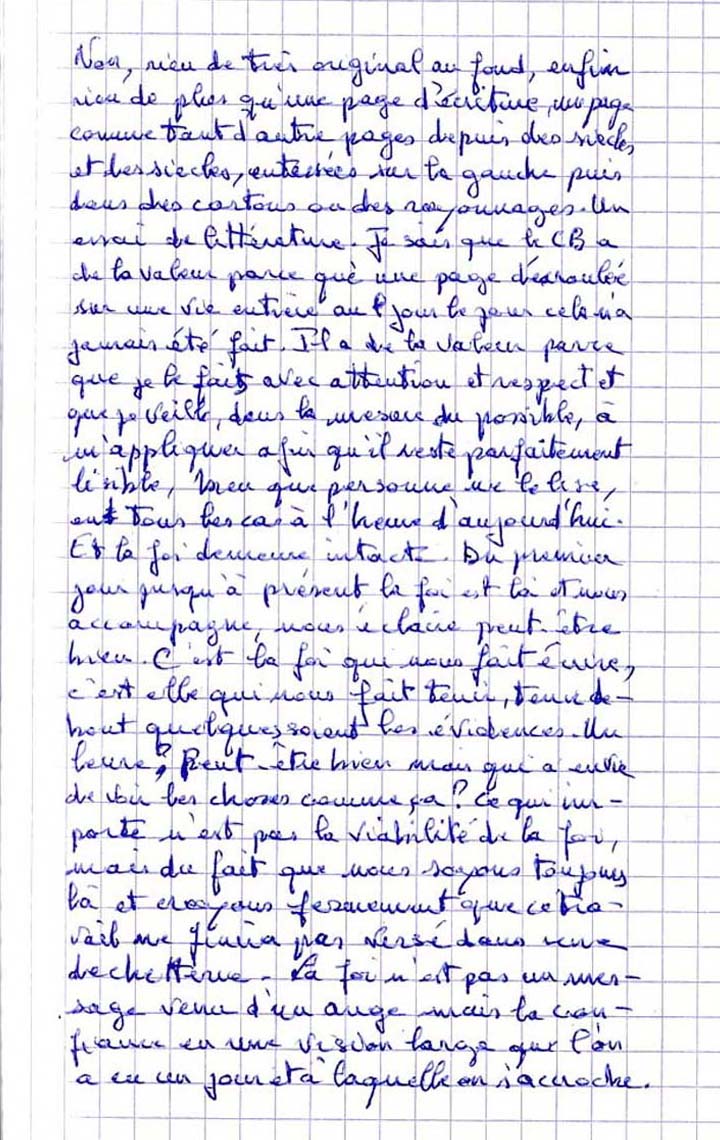 Non, rien de très original au fond, enfin
rien de plus qu'une page d'écriture, un page
comme tant d'autre pages depuis des siècles
et des siècles, entassées sur la gauche puis
dans des cartons ou des rayonnages. Un
essai de littérature. Je sais que le CB a
de la valeur parce què une page déroulée
sur une vie entière au jour le jour cela n'a
jamais été fait. Il a de la valeur parce
que je le fais avec attention et respect et
que je veille, dans la mesure du possible, à
m'appliquer afin qu'il reste parfaitement
lisible, bien que personne ne le lise,
en tous les cas à l'heure d'aujourd'hui.
Et la foi demeure intacte. Du premier
jour jusqu'à présent la foi est là et nous
accompagne, nous éclaire peut-être
bien. C'est la foi qui nous fait écrire,
c'est elle qui nous fait tenir, tenir de-
bout quelques soient les évidences. Un
leurre? Peut-être bien mais qui a envie
de voir les choses comme ça? Ce qui im-
porte n'est pas la viabilité de la foi,
mais du fait que nous soyons toujours
là et croyons fermement que ce tra-
vail ne finira pas versé dans une
dechetterie. La foi n'est pas un mes-
sage venu d'un ange mais la con-
fiance en une vision large que l'on
a eu un jour et à laquelle on s'accroche.